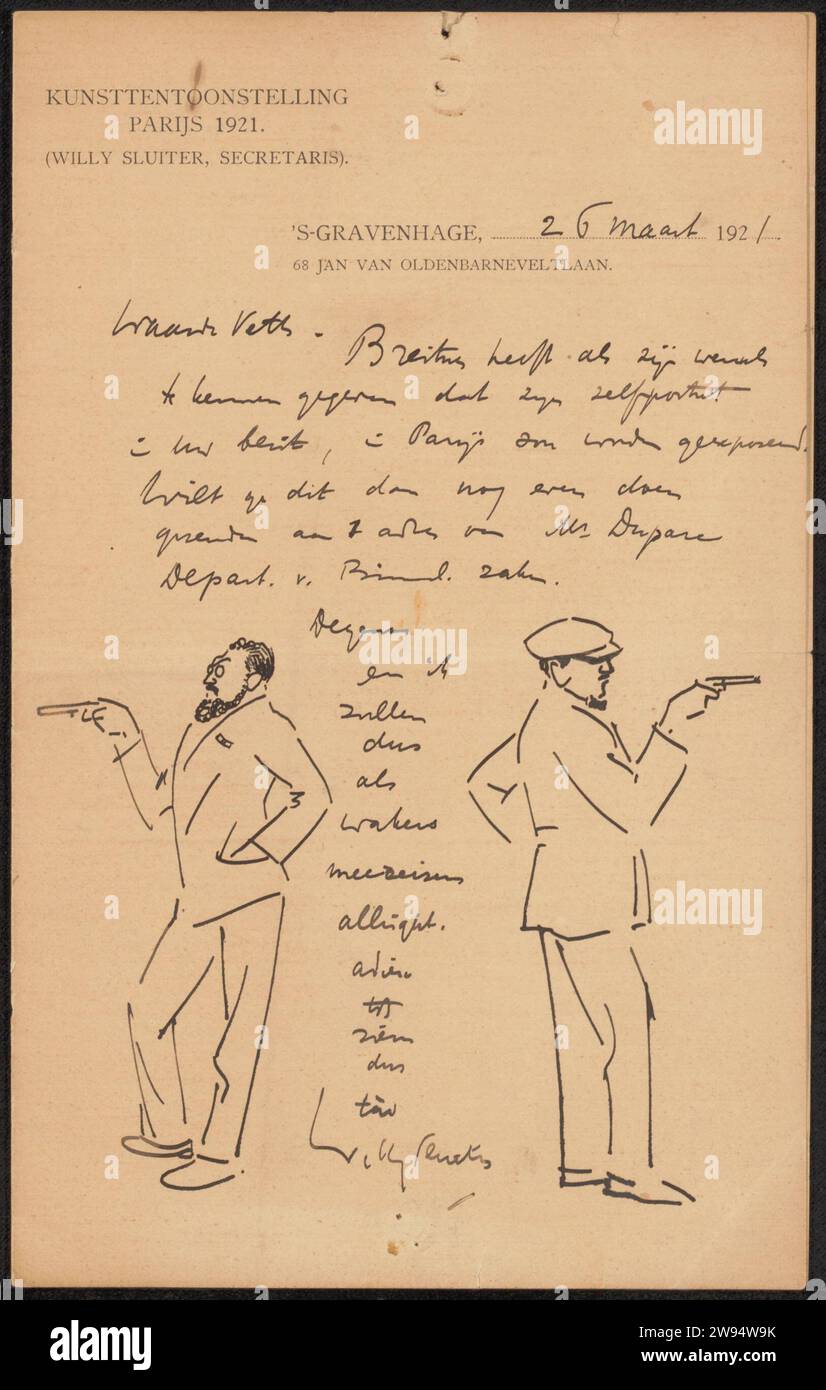 KUNSTTENTOONSTELLING
PARIJS 1921.
(WILLY SLUITER, SECRETARIS).
'S-GRAVENHAGE, 26 maart 1921.
68 JAN VAN OLDENBARNEVELTLAAN.
Waarde Veth.
Breitner heeft als zijn wensch
te kennen gegeven dat zijn zelfportret
in uw bezit, in Parijs zou worden geexposeerd.
Wilt ge dit dan nog even doen
gezenden aan 't adres van Mr Duparc
Depart. v. Binnenl. zaken.
en ik
zullen
dus
als
wakers
meereizen
allright.
adieu
tot
ziens
dus
Willy Sluiter
alamy
Image ID: 2W94W9K
www.alamy.com